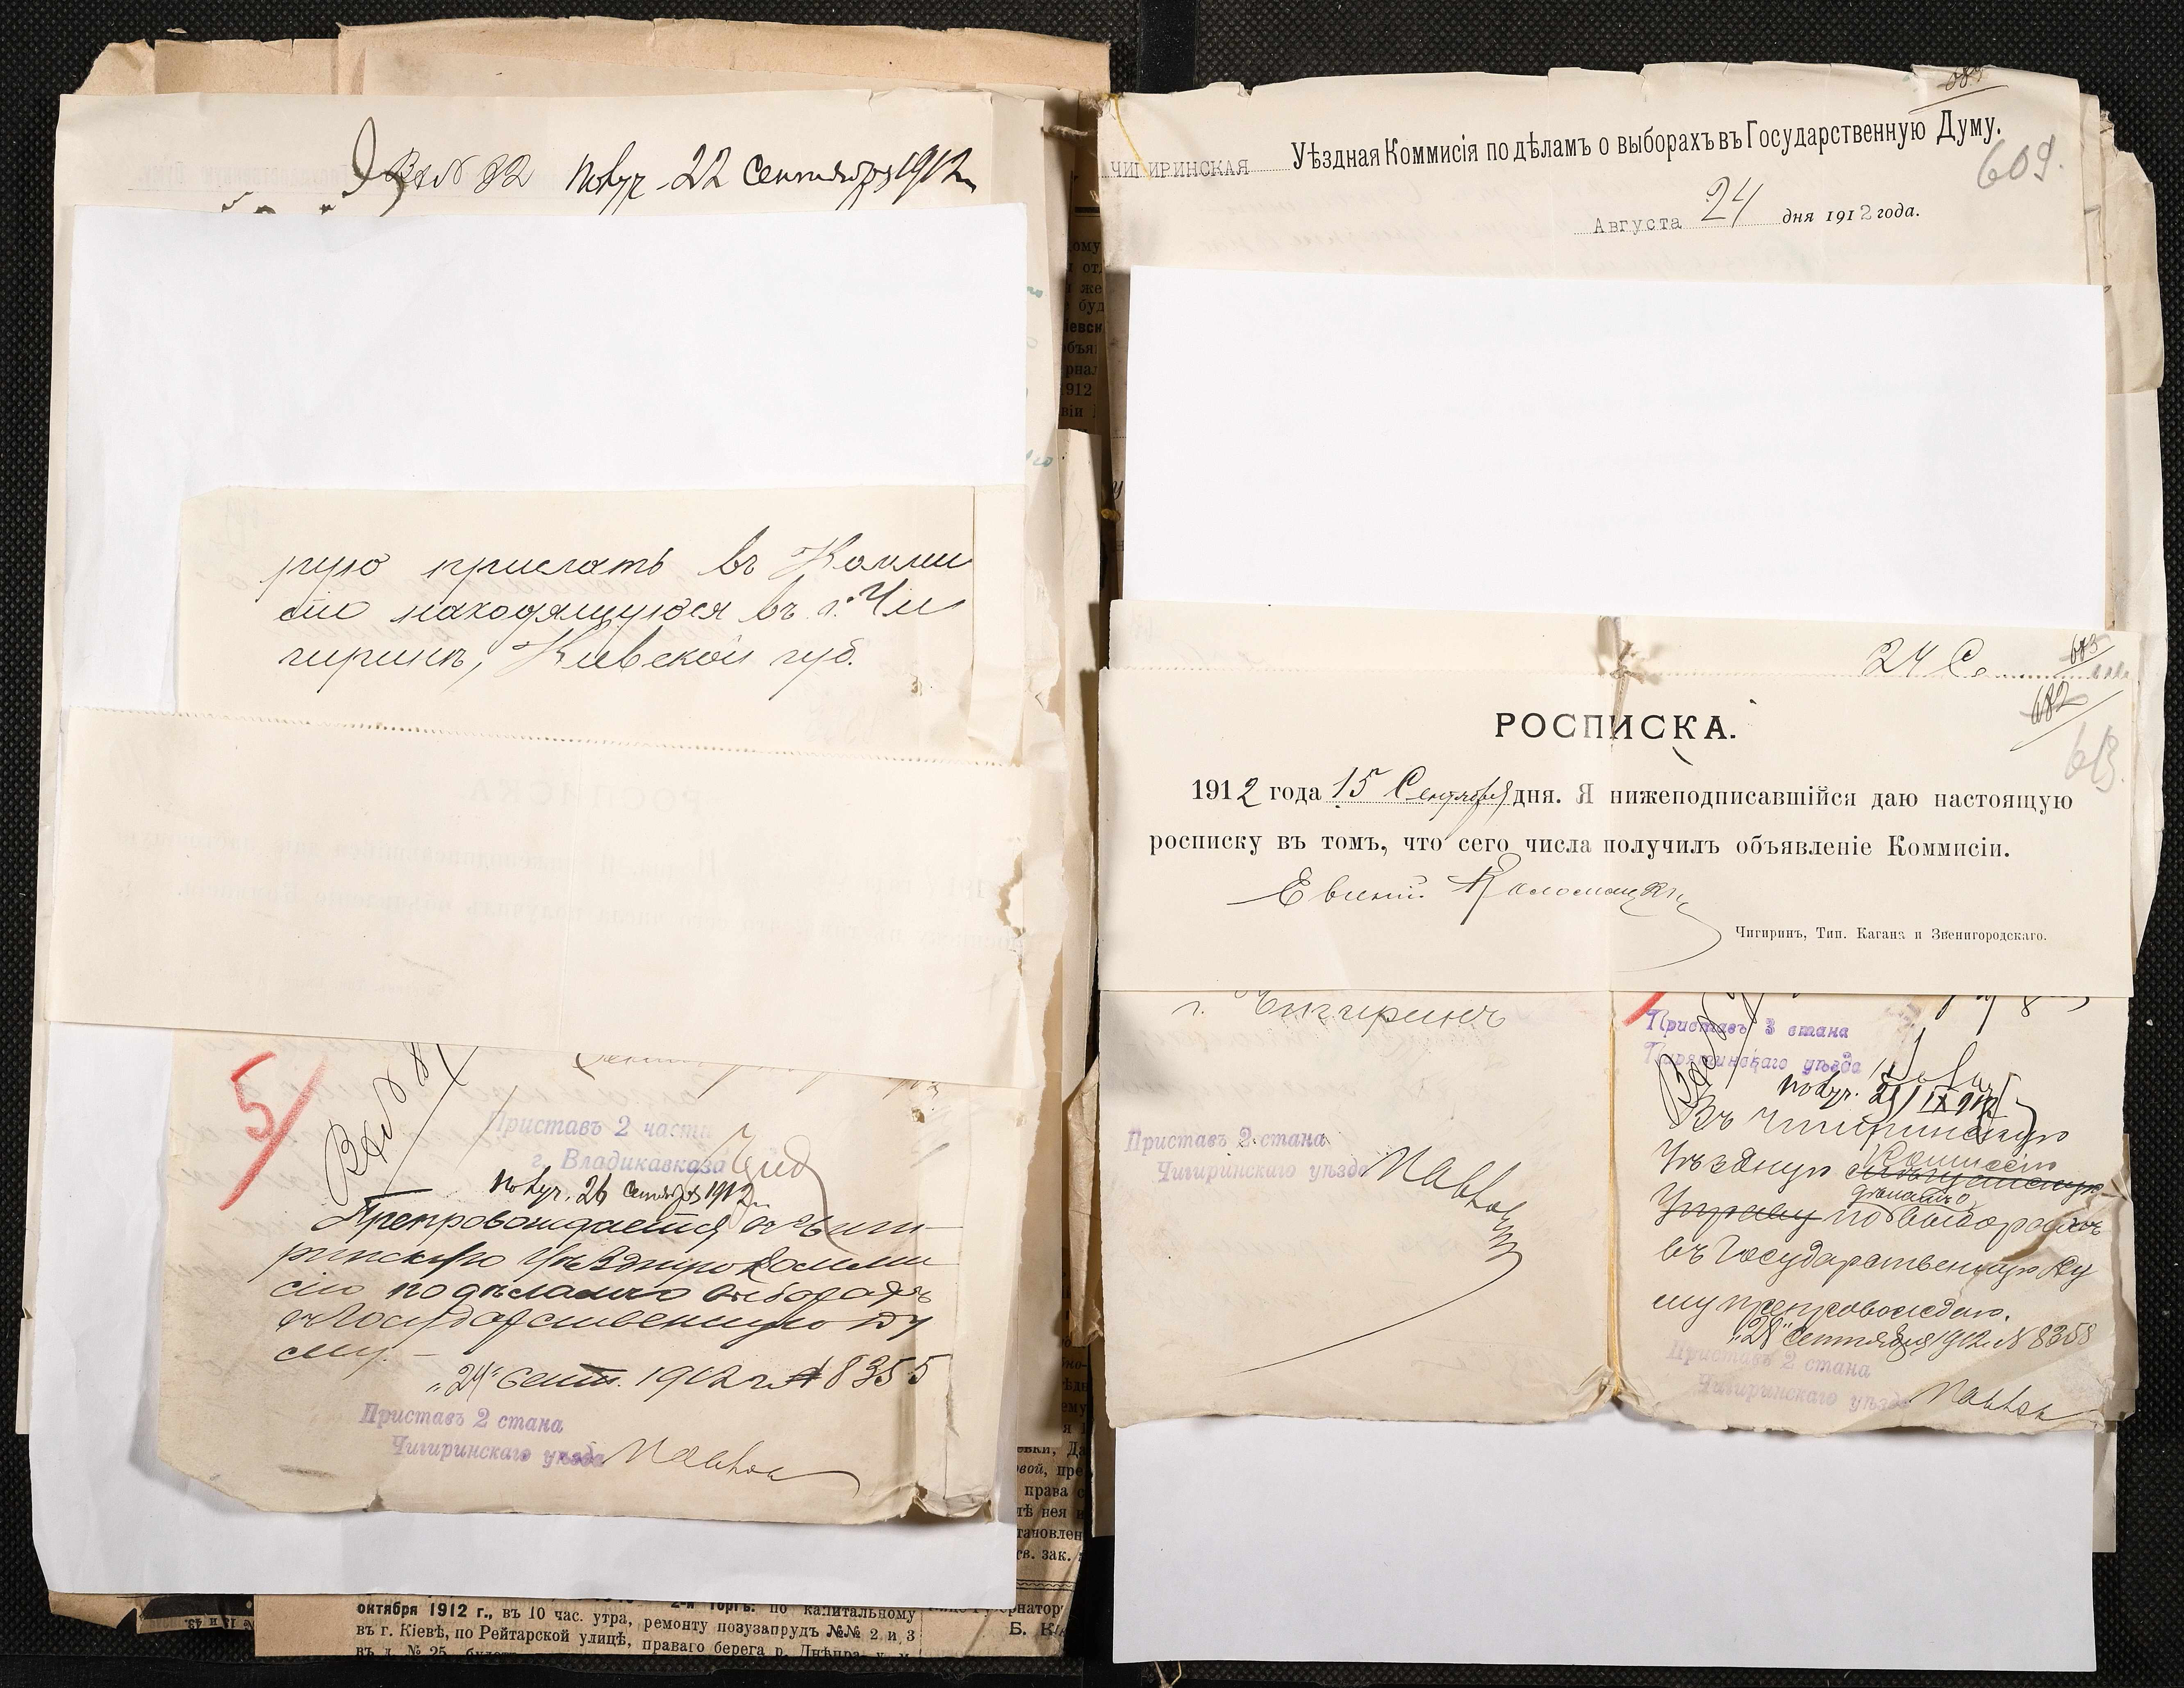 Вх № 82 Получ. 22 Сентября 1912 г.
рую прислать въ Комми
сію находящуюся въ г. Чи
гиринѣ, Кіевской губ.
5/
Вх №
Приставъ 2 части
г. Владикавказа
Получ. 26 Сентября 1912 г.
Препровождается въ Чиги-
ринскую Уѣздную Комми
сію по дѣламъ о выборахъ
въ Государственную Ду
му. –
„24“ Сент. 1912 г. № 8355
Приставъ 2 стана
Чигиринскаго уѣзда
октября 1912 г., въ 10 час. утра,
въ г. Кіевѣ, по Рейтарской улицѣ,
2-й торгъ. по капитальному
ремонту позузапрудъ №№ 2 и 3
праваго берега р. Днѣпра
ЧИГИРИНСКАЯ Уѣздная Коммисія по дѣламъ о выборахъ въ Государственную Думу.
609.
Августа 24 дня 1912 года.
24 С
683
682
613.
РОСПИСКА.
1912 года 15 Сентября дня. Я нижеподписавшійся даю настоящую
росписку въ томъ, что сего числа получилъ объявленіе Коммисіи.
Чигиринъ, Тип. Кагана и Звенигородскаго.
г. Чигиринъ
Приставъ 2 стана
Чигиринскаго уѣзда
Приставъ 3 стана
Пирятинскаго уѣзда
Получ. IX 912
Въ Чигиринскую
Уѣздную Комиссію
Управу по дѣламъ о выборахъ
въ Государственную Ду
му препровождаю.
„28“ Сентября 1912 г. № 8358
Приставъ 2 стана
Чигиринскаго уѣзда